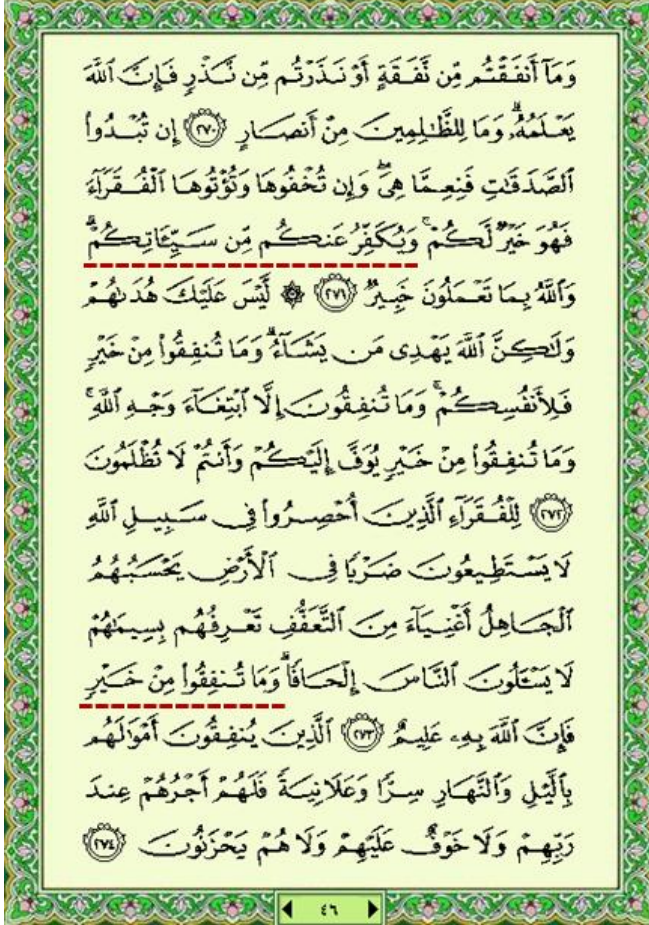 وَمَآ أَنفَقْتُم مِّن نَّفَقَةٍ أَوْ نَذَرْتُم مِّن نَّذْرٍ فَإِنَّ ٱللَّهَ
يَعْلَمُهُۥۗ وَمَا لِلظَّٰلِمِينَ مِنْ أَنصَارٍ ﴿٢٧٠﴾ إِن تُبْدُوا۟
ٱلصَّدَقَٰتِ فَنِعِمَّا هِىَۖ وَإِن تُخْفُوهَا وَتُؤْتُوهَا ٱلْفُقَرَآءَ
فَهُوَ خَيْرٌ لَّكُمْۚ وَيُكَفِّرُ عَنكُم مِّن سَيِّـَٔاتِكُمْۗ
وَٱللَّهُ بِمَا تَعْمَلُونَ خَبِيرٌ ﴿٢٧١﴾ ۞ لَّيْسَ عَلَيْكَ هُدَىٰهُمْ
وَلَٰكِنَّ ٱللَّهَ يَهْدِى مَن يَشَآءُۗ وَمَا تُنفِقُوا۟ مِنْ خَيْرٍ
فَلِأَنفُسِكُمْۚ وَمَا تُنفِقُونَ إِلَّا ٱبْتِغَآءَ وَجْهِ ٱللَّهِۚ
وَمَا تُنفِقُوا۟ مِنْ خَيْرٍ يُوَفَّ إِلَيْكُمْ وَأَنتُمْ لَا تُظْلَمُونَ
﴿٢٧٢﴾ لِلْفُقَرَآءِ ٱلَّذِينَ أُحْصِرُوا۟ فِى سَبِيلِ ٱللَّهِ
لَا يَسْتَطِيعُونَ ضَرْبًا فِى ٱلْأَرْضِ يَحْسَبُهُمُ
ٱلْجَاهِلُ أَغْنِيَآءَ مِنَ ٱلتَّعَفُّفِ تَعْرِفُهُم بِسِيمَٰهُمْ
لَا يَسْـَٔلُونَ ٱلنَّاسَ إِلْحَافًاۗ وَمَا تُنفِقُوا۟ مِنْ خَيْرٍ
فَإِنَّ ٱللَّهَ بِهِۦ عَلِيمٌ ﴿٢٧٣﴾ ٱلَّذِينَ يُنفِقُونَ أَمْوَٰلَهُم
بِٱلَّيْلِ وَٱلنَّهَارِ سِرًّا وَعَلَانِيَةً فَلَهُمْ أَجْرُهُمْ عِندَ
رَبِّهِمْ وَلَا خَوْفٌ عَلَيْهِمْ وَلَا هُمْ يَحْزَنُونَ ﴿٢٧٤﴾
٤٦